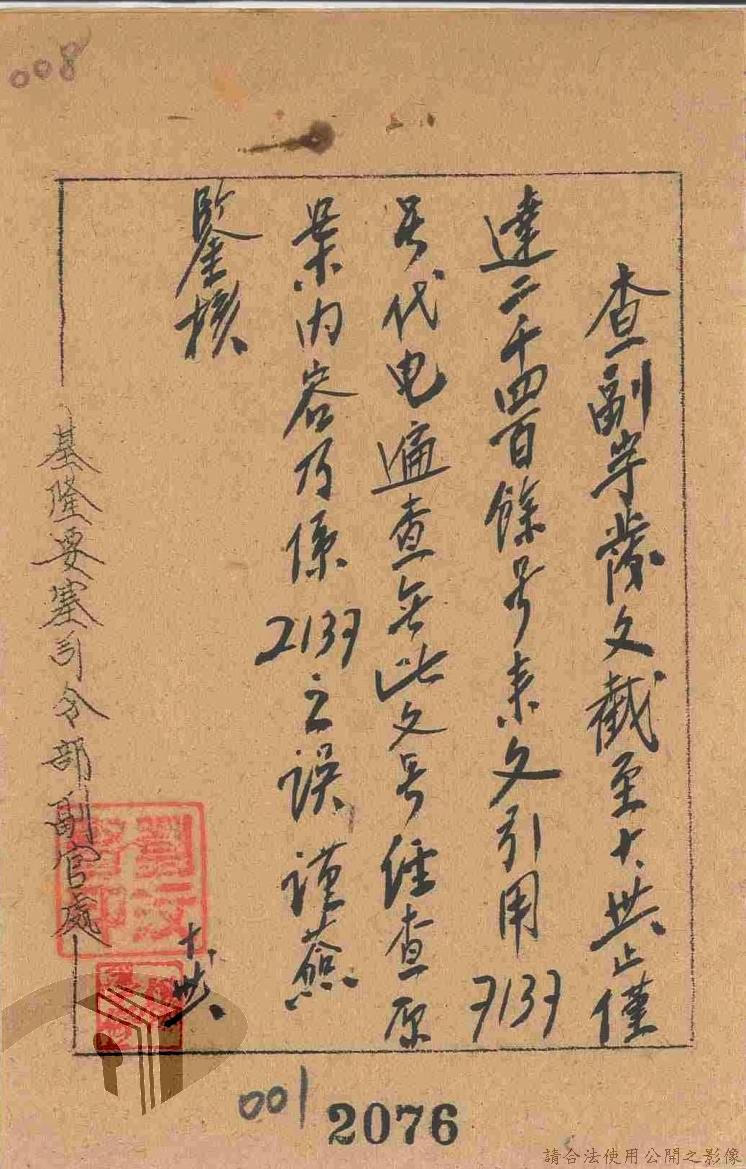 008
查副字發文截至十、卅、止僅
達二千四百餘号来文引用7137
号代电遍查無此文号經查原
案内容乃係2137之誤謹簽
鑒核
十、卅、
基隆要塞司令部副官處
001
2076
請合法使用公開之影像